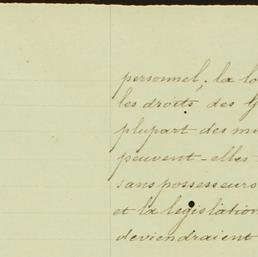 personnel; la lo
les droits des G
plupart des mu
peuvent-elles
sans possesseurs
et la législation
deviendraient